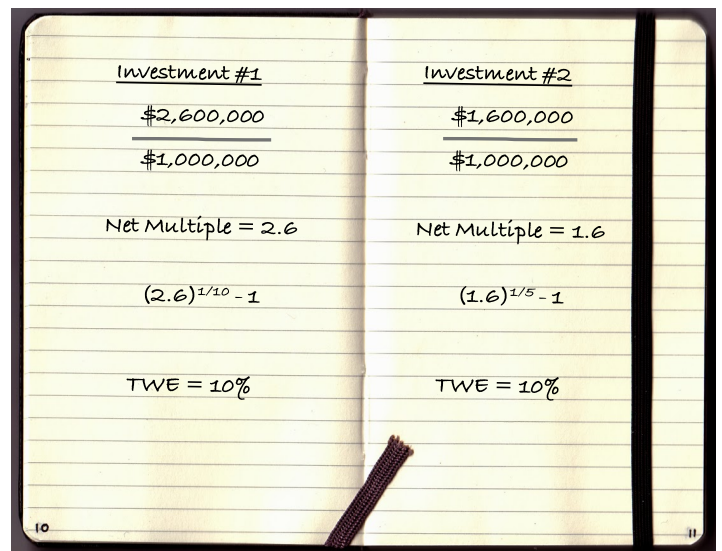 Investment #1
$2,600,000
$1,000,000
Net Multiple = 2.6
(2.6)^1/10 - 1
TWE = 10%
10
Investment #2
$1,600,000
$1,000,000
Net Multiple = 1.6
(1.6)^1/5 - 1
TWE = 10%
11